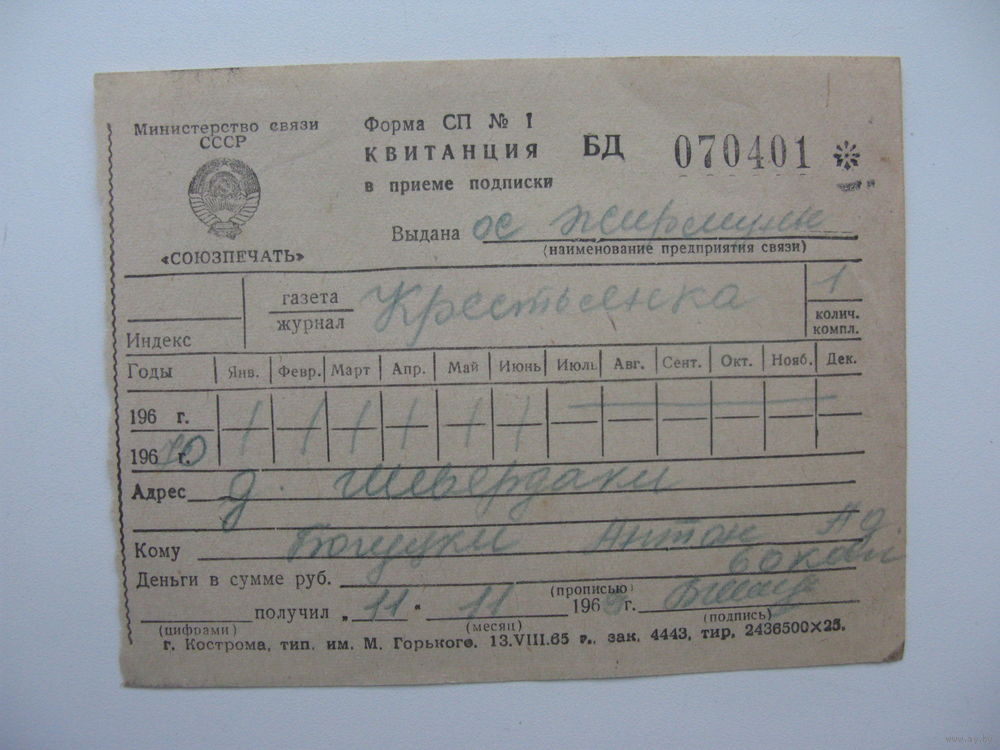 Министерство связи
СССР
«СОЮЗПЕЧАТЬ»
Форма СП № 1
КВИТАНЦИЯ
в приеме подписки
БД 070401
Выдана ос
(наименование предприятия связи)
Индекс
газета
журнал
Крестьянка
1
колич.
компл.
Годы Янв. Февр. Март Апр. Май Июнь Июль Авг. Сент. Окт. Нояб. Дек.
196 г.
196 70 г.
Адрес д. Шевердаки
Кому Богуцки Антон Ад.
Деньги в сумме руб. 60 коп
(прописью)
получил „11“ 11 1969 г.
(цифрами) (месяц) (подпись)
г. Кострома, тип. им. М. Горького. 13.VIII.65 г., зак. 4443, тир. 2436500×25.
www.ay.by